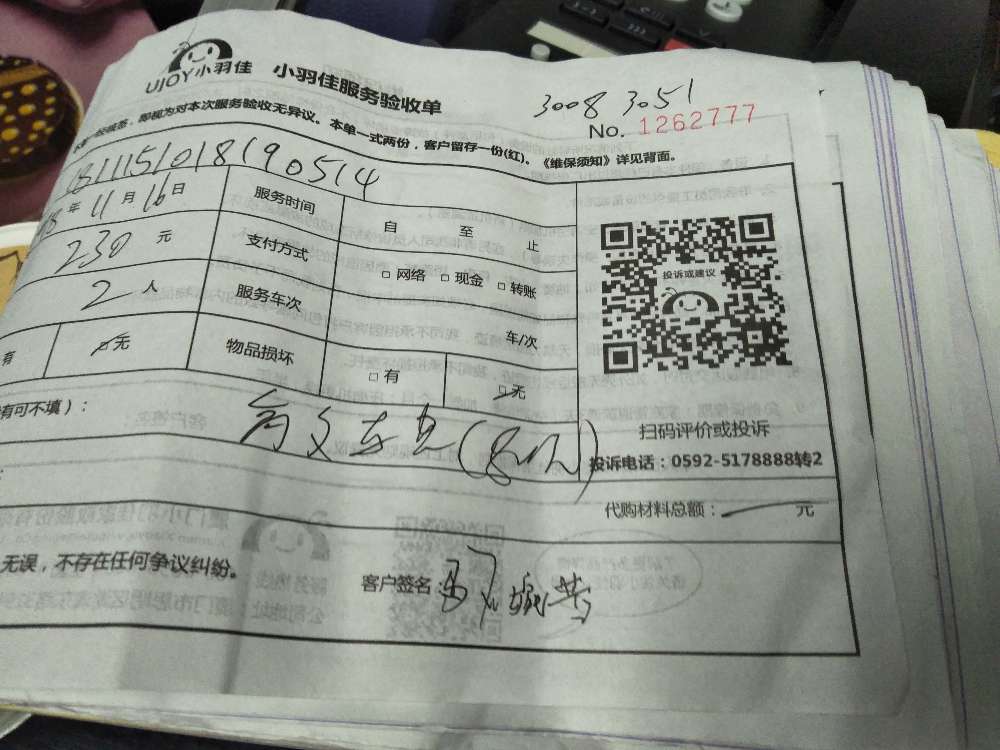 UJOY小羽佳 小羽佳服务验收单
3008 3051
No. 1262777
即视为对本次服务验收无异议。本单一式两份，客户留存一份(红)。《维保须知》详见背面。
811151018190514
18年11月16日 服务时间 自 至 止
230元 支付方式 □网络 □现金 □转账
2人 服务车次 车/次
有 □无 物品损坏 □有 □无
投诉或建议
有可不填）：
扫码评价或投诉
投诉电话：0592-5178888转2
代购材料总额： 元
无误，不存在任何争议纠纷。
客户签名：